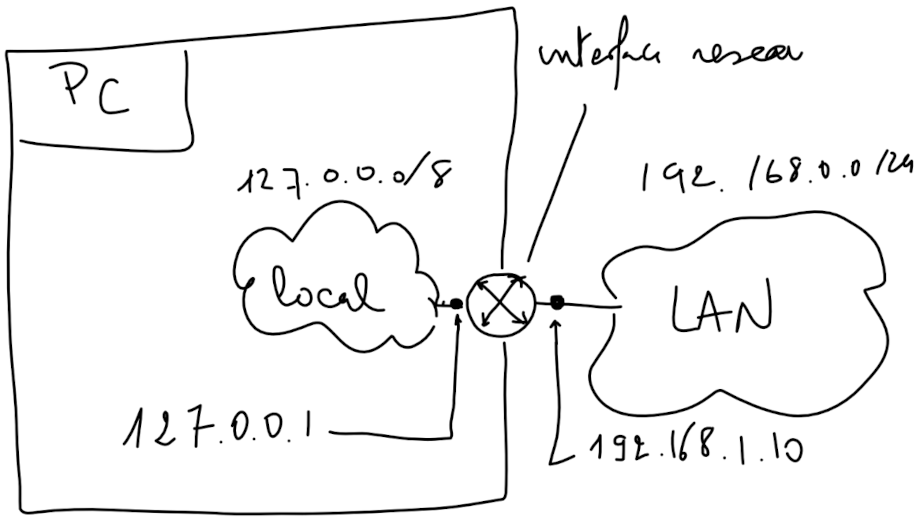 PC
interface reseau
127.0.0.0/8
192.168.0.0/24
local
LAN
127.0.0.1
192.168.1.10